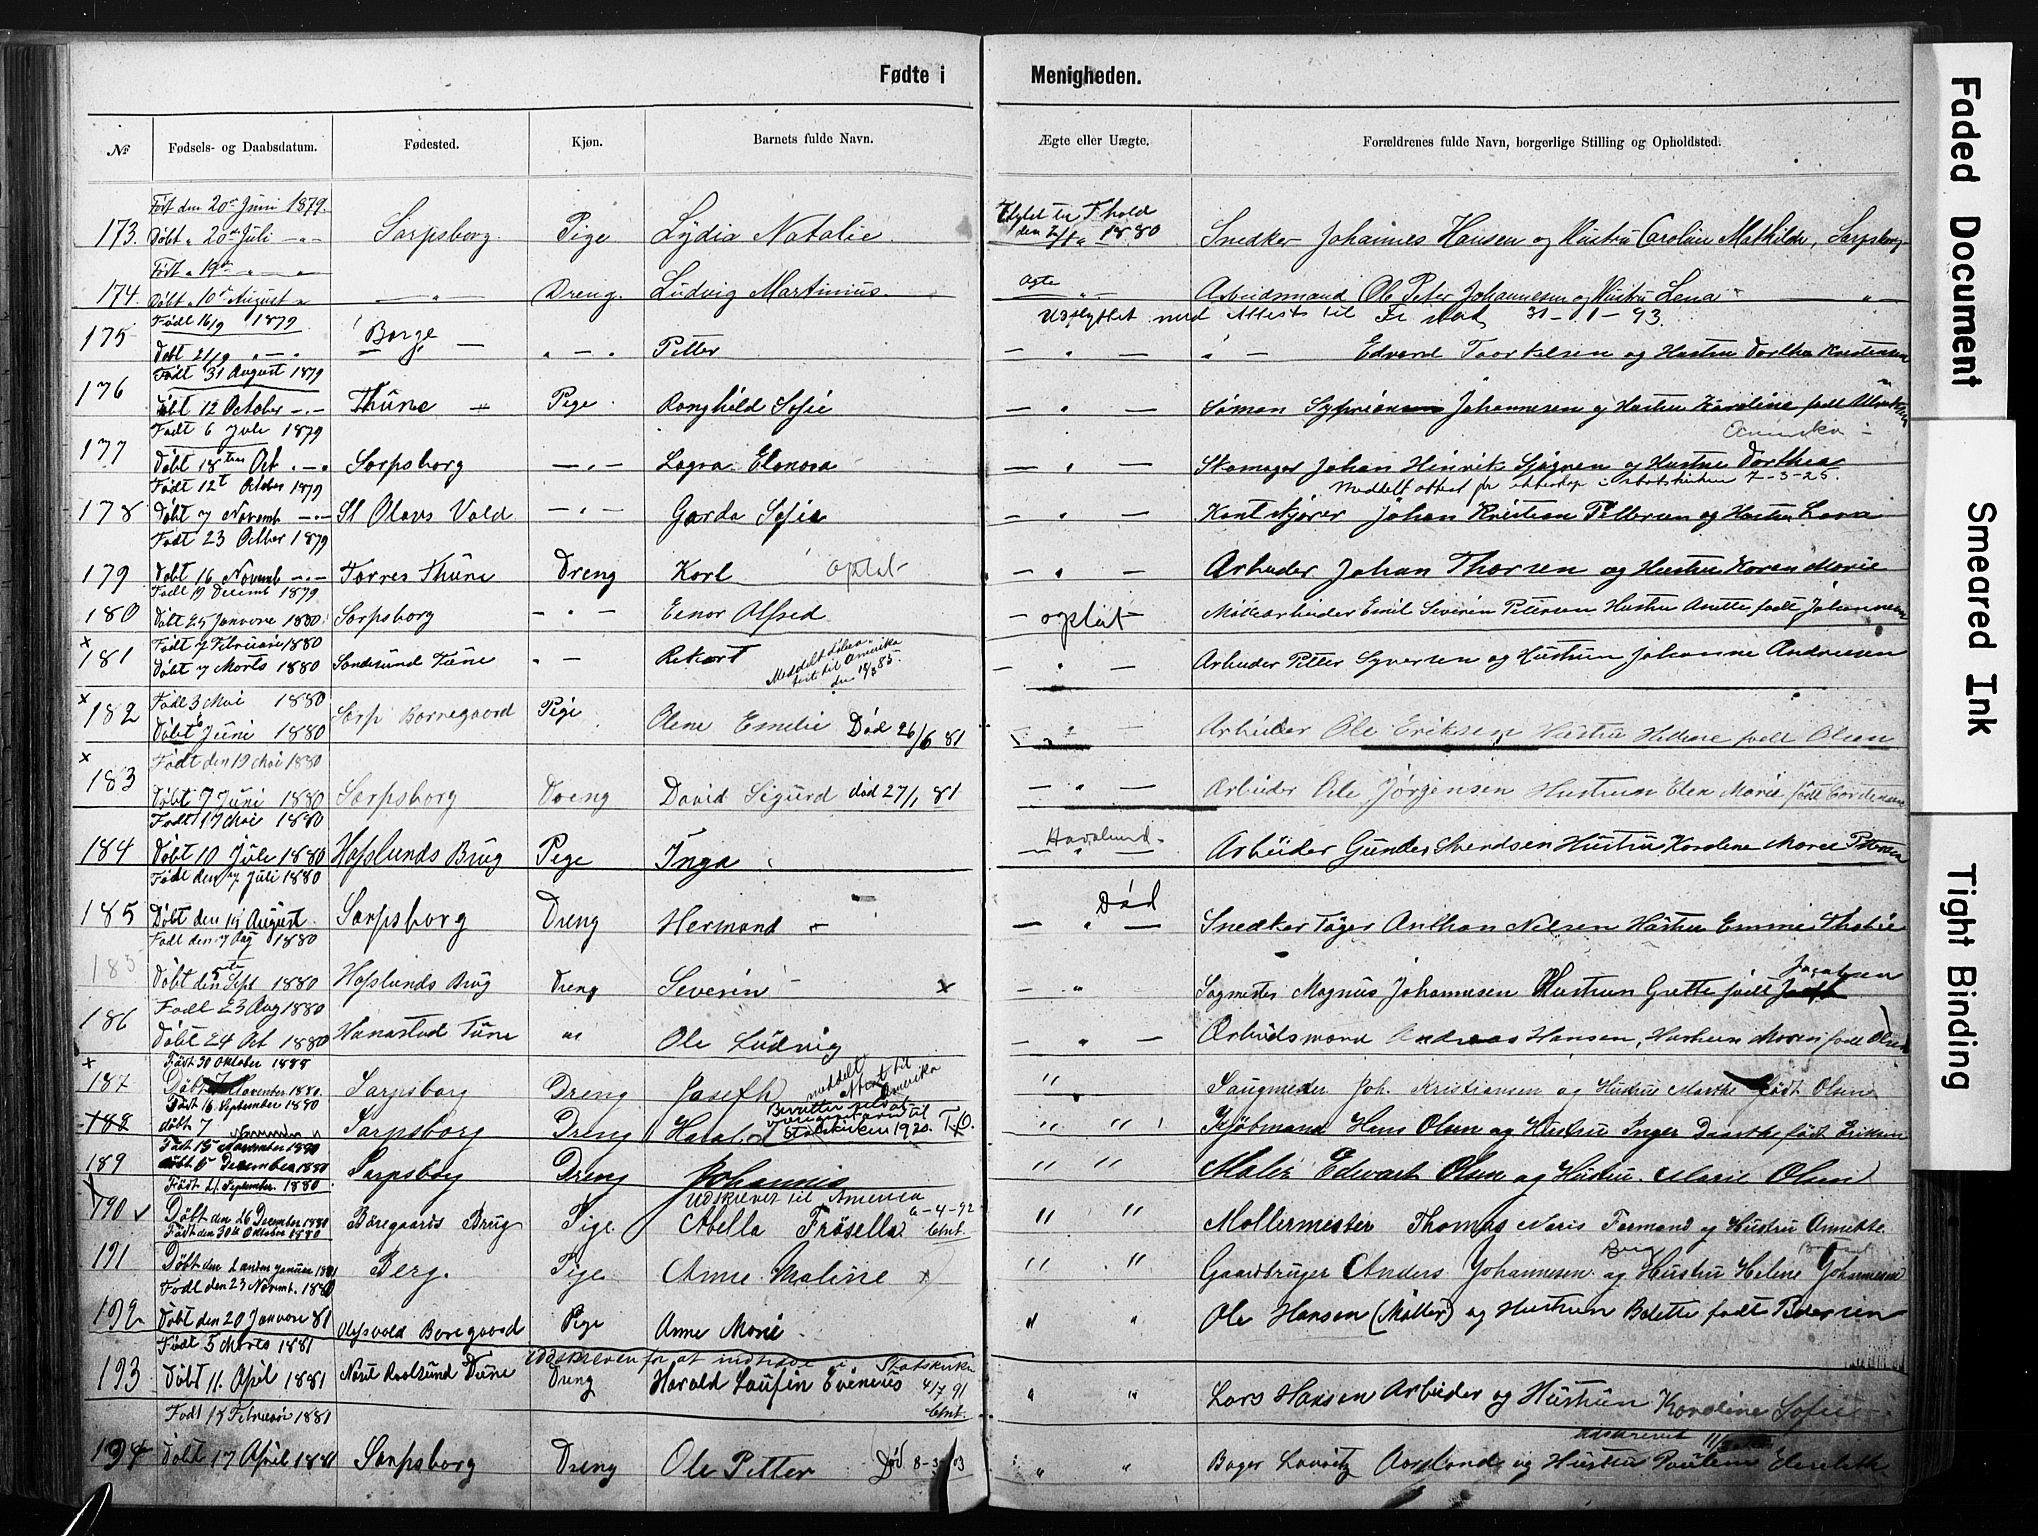 Fødte i Menigheden.
№ Fødsels- og Daabsdatum. Fødested. Kjøn. Barnets fulde Navn. Ægte eller Uægte. Forældrenes fulde Navn, borgerlige Stilling og Opholdsted.
Født den 20de Juni 1879. den 1880
173. Døbt " 20de Juli — " — Sarpsborg. Pige Lydia Natalie. Snedker Johannes Hansen og Hustru Caroline Mathilde, Sarpsborg
Født " 19de " — "
174. Døbt " 10de August " — " — Dreng. Ludvig Martinius. Ægte " — Arbeidsmand Ole Peter Johannesen og Hustru Lena "
Født 16/9 1879 Udflyttet med Attest til Fr stad 31-1-93.
175 Døbt 21/9 " — " Borge — " — " Petter — " — " — Edvard Taarkelsen og Hustru Dorthea Kristensen
Født 31 August 1879
176 Døbt 12 October — " — Thune — " Pige. Ranghild Sofie — " — Simon Johannesen og Hustru Karoline født
Født 6 Juli 1879 Amerika
177 Døbt 18 Oct. — " Sarpsborg — " — Lagra Elonora — " — Skomager Johan Hinrik Sjøgren og Hustru Dorthea
Født 12t October 1879 Meddelt attest for i statskirken 7-3-25.
178 Døbt 7 Novemb — " — St Olavs Vold — " — Garda Sofie — " — Johan Kristian Pettersen og Hustru Lova
Født 23 Octber 1879
179 Døbt 16 Novemb — " — Torres Thune Dreng Karl optat — " — Arbeider Johan Thorsen og Hustru Karen Marie
Født 19 Decemb 1879
180 Døbt 25 Januare 1880 Sarpsborg — " — Einar Alfred — optat — Møllearbeider Emil Severin Petersen Hustru Anette født Johannesen
x Født 7 Februarie 1880 Meddelt
181 Døbt 7 Marts 1880 Sandesund Tune " — Rikart til Amerika — " — Arbeider Petter Syversen og Hustrun Johanne Andresen
x Født 3 Mai 1880
182 Døbt 6 Juni 1880 Sarp Borregaard Pige Olene Emelie Død 26/6 81 " — Arbeider Ole Eriksen Hustru Helene født Olsen
x Født den 19 Mai 1880
183 Døbt 7 Juni 1880 Sarpsborg Dreng David Sigurd død 27/1 81 — " — Arbeider Ole Jørgensen Hustrun Elen Marie født
Født 17 Mai 1880
184 Døbt 10 Juli 1880 Hafslunds Brug Pige Inga Arbeider Gunder Svendsen Hustru Karoline Marie Petersen
Født den 7 Juli 1880 Død
185 Døbt den 15 August Sarpsborg Dreng Hermand — " — Snedker Anthon Nilsen Hustru Emmie
Født den 7 Aug 1880
185 Døbt den 5te Sept 1880 Hafslunds Brug Dreng Severin x — " Sagmester Magnus Johannesen Hustrun Grette født Jacobsen
Født 23 Aug 1880
186 Døbt 24 Oct 1880 Hanastad Tune " Ole Ludvig — " — Arbeidsmand Andreas Hansen, Hustrun Maren født Olsen
x Født 30 Oktober 1880 meddelt Attest til Amerika
187 Døbt November 1880 Sarpsborg Dreng Josefh " Saugmester Joh. Kristiansen og Hustru Marthe født Olsen
Født 16 September 1880
188 døbt 7 November Sarpsborg Dreng Harald Statskirken 1920. T.O. " " Kjøbmand Hans Olsen og Hustru Inger Daarthe født Eriksen
Født 15 November 1880
189 døbt 5 December 1880 Sarpsborg Dreng Johannes " " Maler Edwart Olsen og Hustru Marie Olsen
Født 21 September 1880 Udskrevet til America 6-4-92
190 Døbt den 26 December 1880 Boregaards Brug Pige Abella Frøsella " " Møllermester Thomas og Hustru Annette.
Født den 30te Oktober 1880
191 Døbt den 2 anden januar 1881 Berg. Pige Anne Maline x " " Gaardbruger Anders Johannesen Berg og Hustru Helene Johannesen
Født den 23 Novemb. 1880
192 Døbt den 20 Januare 81 Olafsvold Boregaard Pige Anne Marie " " Ole Hansen (Møller) og Hustrun Bolette født Pedersen
Født 5 Marts 1881 Udskreven for at indtræde i Statskirken 4/7 91
193 Døbt 11. April 1881 Tune Dreng Harald Evenius " " Lars Hansen Arbeider og Hustrun Karoline Sofie
Født 18 Februarie 1881 udskrevet
194 Døbt 17 April 1881 Sarpsborg Dreng Ole Petter Død " " Bager og Hustru Pauline
Faded Document
Smeared Ink
Tight Binding